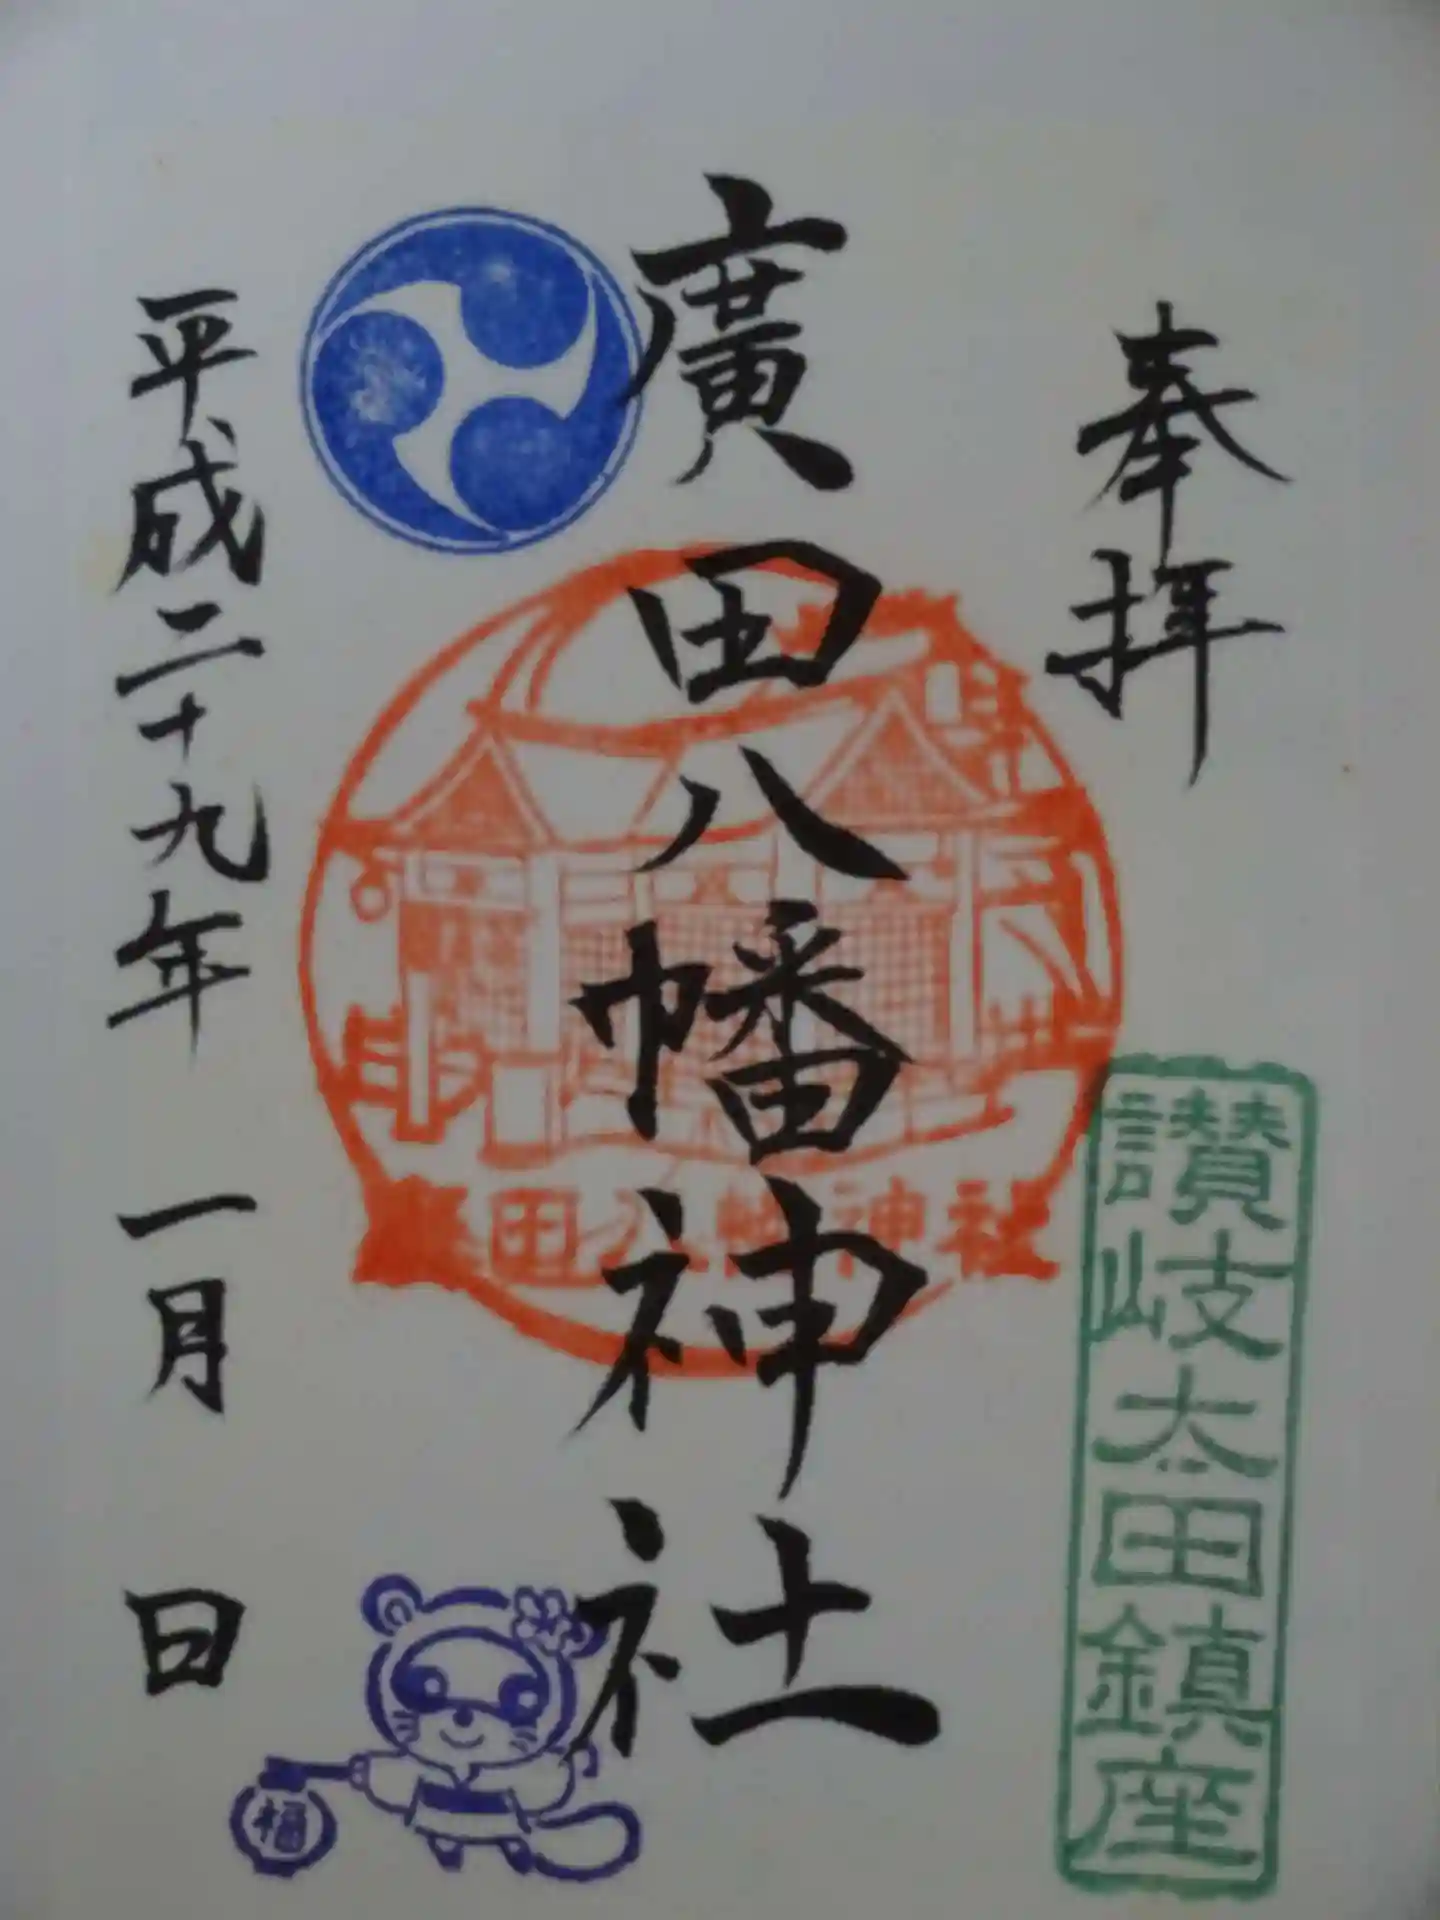 奉拝
讃岐太田鎮座
廣田八幡神社
田八幡神社
福
平成二十九年 一月 日